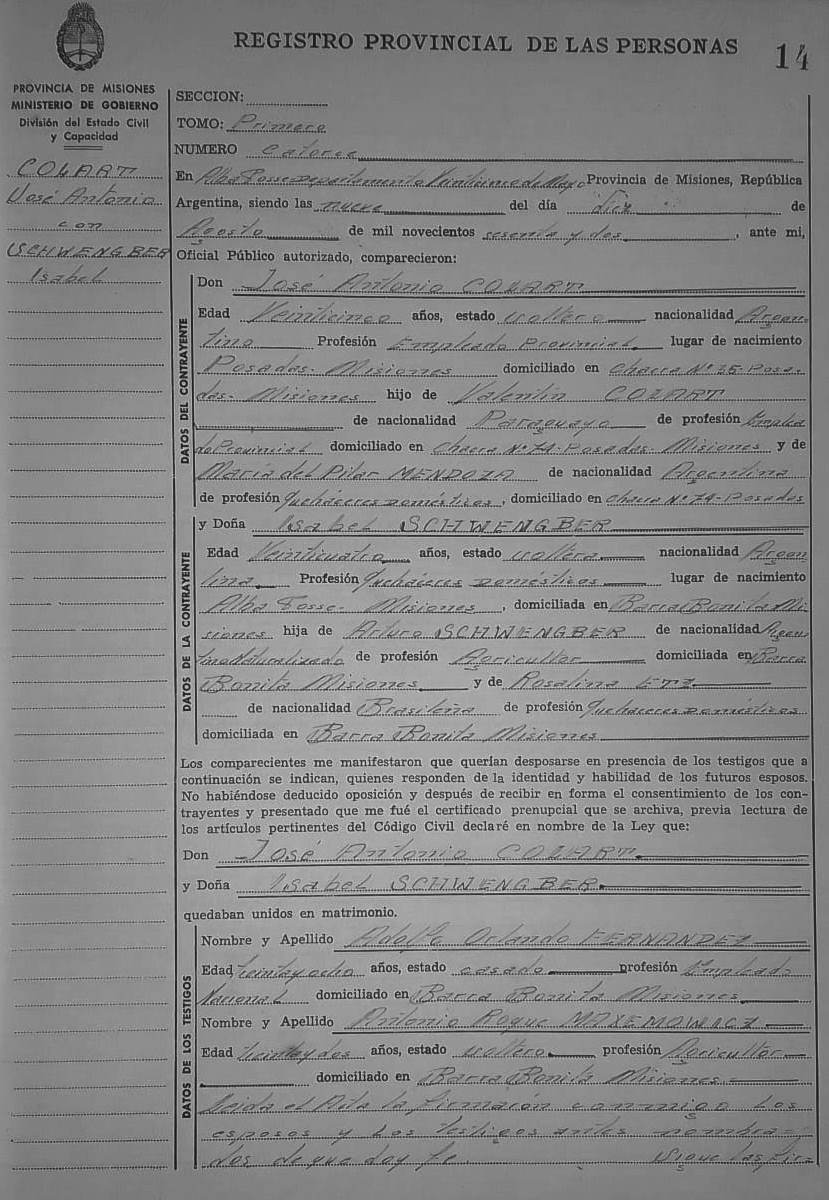 REGISTRO PROVINCIAL DE LAS PERSONAS
14
PROVINCIA DE MISIONES
MINISTERIO DE GOBIERNO
División del Estado Civil
y Capacidad
COLART
José Antonio
con
SCHWENGBER
Isabel
SECCION:
TOMO: Primero
NUMERO Catorce
En Alba Posse Departamento Veinticinco de Mayo Provincia de Misiones, República
Argentina, siendo las nueve del día diez de
Agosto de mil novecientos sesenta y dos, ante mi,
Oficial Público autorizado, comparecieron:
DATOS DEL CONTRAYENTE
Don José Antonio COLART
Edad Veinticinco años, estado soltero nacionalidad Argen-
tino Profesión Empleado Provincial lugar de nacimiento
Posadas- Misiones domiciliado en Chacra Nº 25-Posa-
das- Misiones hijo de Valentín COLART
de nacionalidad Paraguayo de profesión Emplea
do Provincial domiciliado en Chacra Nº 74-Posadas- Misiones y de
María del Pilar MENDOZA de nacionalidad Argentina
de profesión Quehaceres Domésticos, domiciliado en Chacra Nº 74-Posadas
DATOS DE LA CONTRAYENTE
y Doña Isabel SCHWENGBER
Edad Veinticuatro años, estado soltera nacionalidad Argen
tina Profesión Quehaceres Domésticos lugar de nacimiento
Alba Posse- Misiones, domiciliada en Barra Bonita Mi
siones hija de Arturo SCHWENGBER de nacionalidad Argen
tino Naturalizado de profesión Agricultor domiciliada en Barra
Bonita Misiones y de Rosalina ETZ
de nacionalidad Brasileña de profesión Quehaceres Domésticos
domiciliada en Barra Bonita Misiones
Los comparecientes me manifestaron que querían desposarse en presencia de los testigos que a
continuación se indican, quienes responden de la identidad y habilidad de los futuros esposos.
No habiéndose deducido oposición y después de recibir en forma el consentimiento de los con-
trayentes y presentado que me fué el certificado prenupcial que se archiva, previa lectura de
los artículos pertinentes del Código Civil declaré en nombre de la Ley que:
Don José Antonio COLART
y Doña Isabel SCHWENGBER
quedaban unidos en matrimonio.
DATOS DE LOS TESTIGOS
Nombre y Apellido Adolfo Orlando FERNANDEZ
Edad treintay ocho años, estado casado profesión Empleado
Nacional domiciliado en Barra Bonita Misiones
Nombre y Apellido Antonio Roque
Edad treintay dos años, estado soltero profesión Agricultor
domiciliado en Barra Bonita Misiones
Leida el Acta la firmaron conmigo los
esposos y los testigos antes nombra-
dos de que doy fe. Sigue las fir=